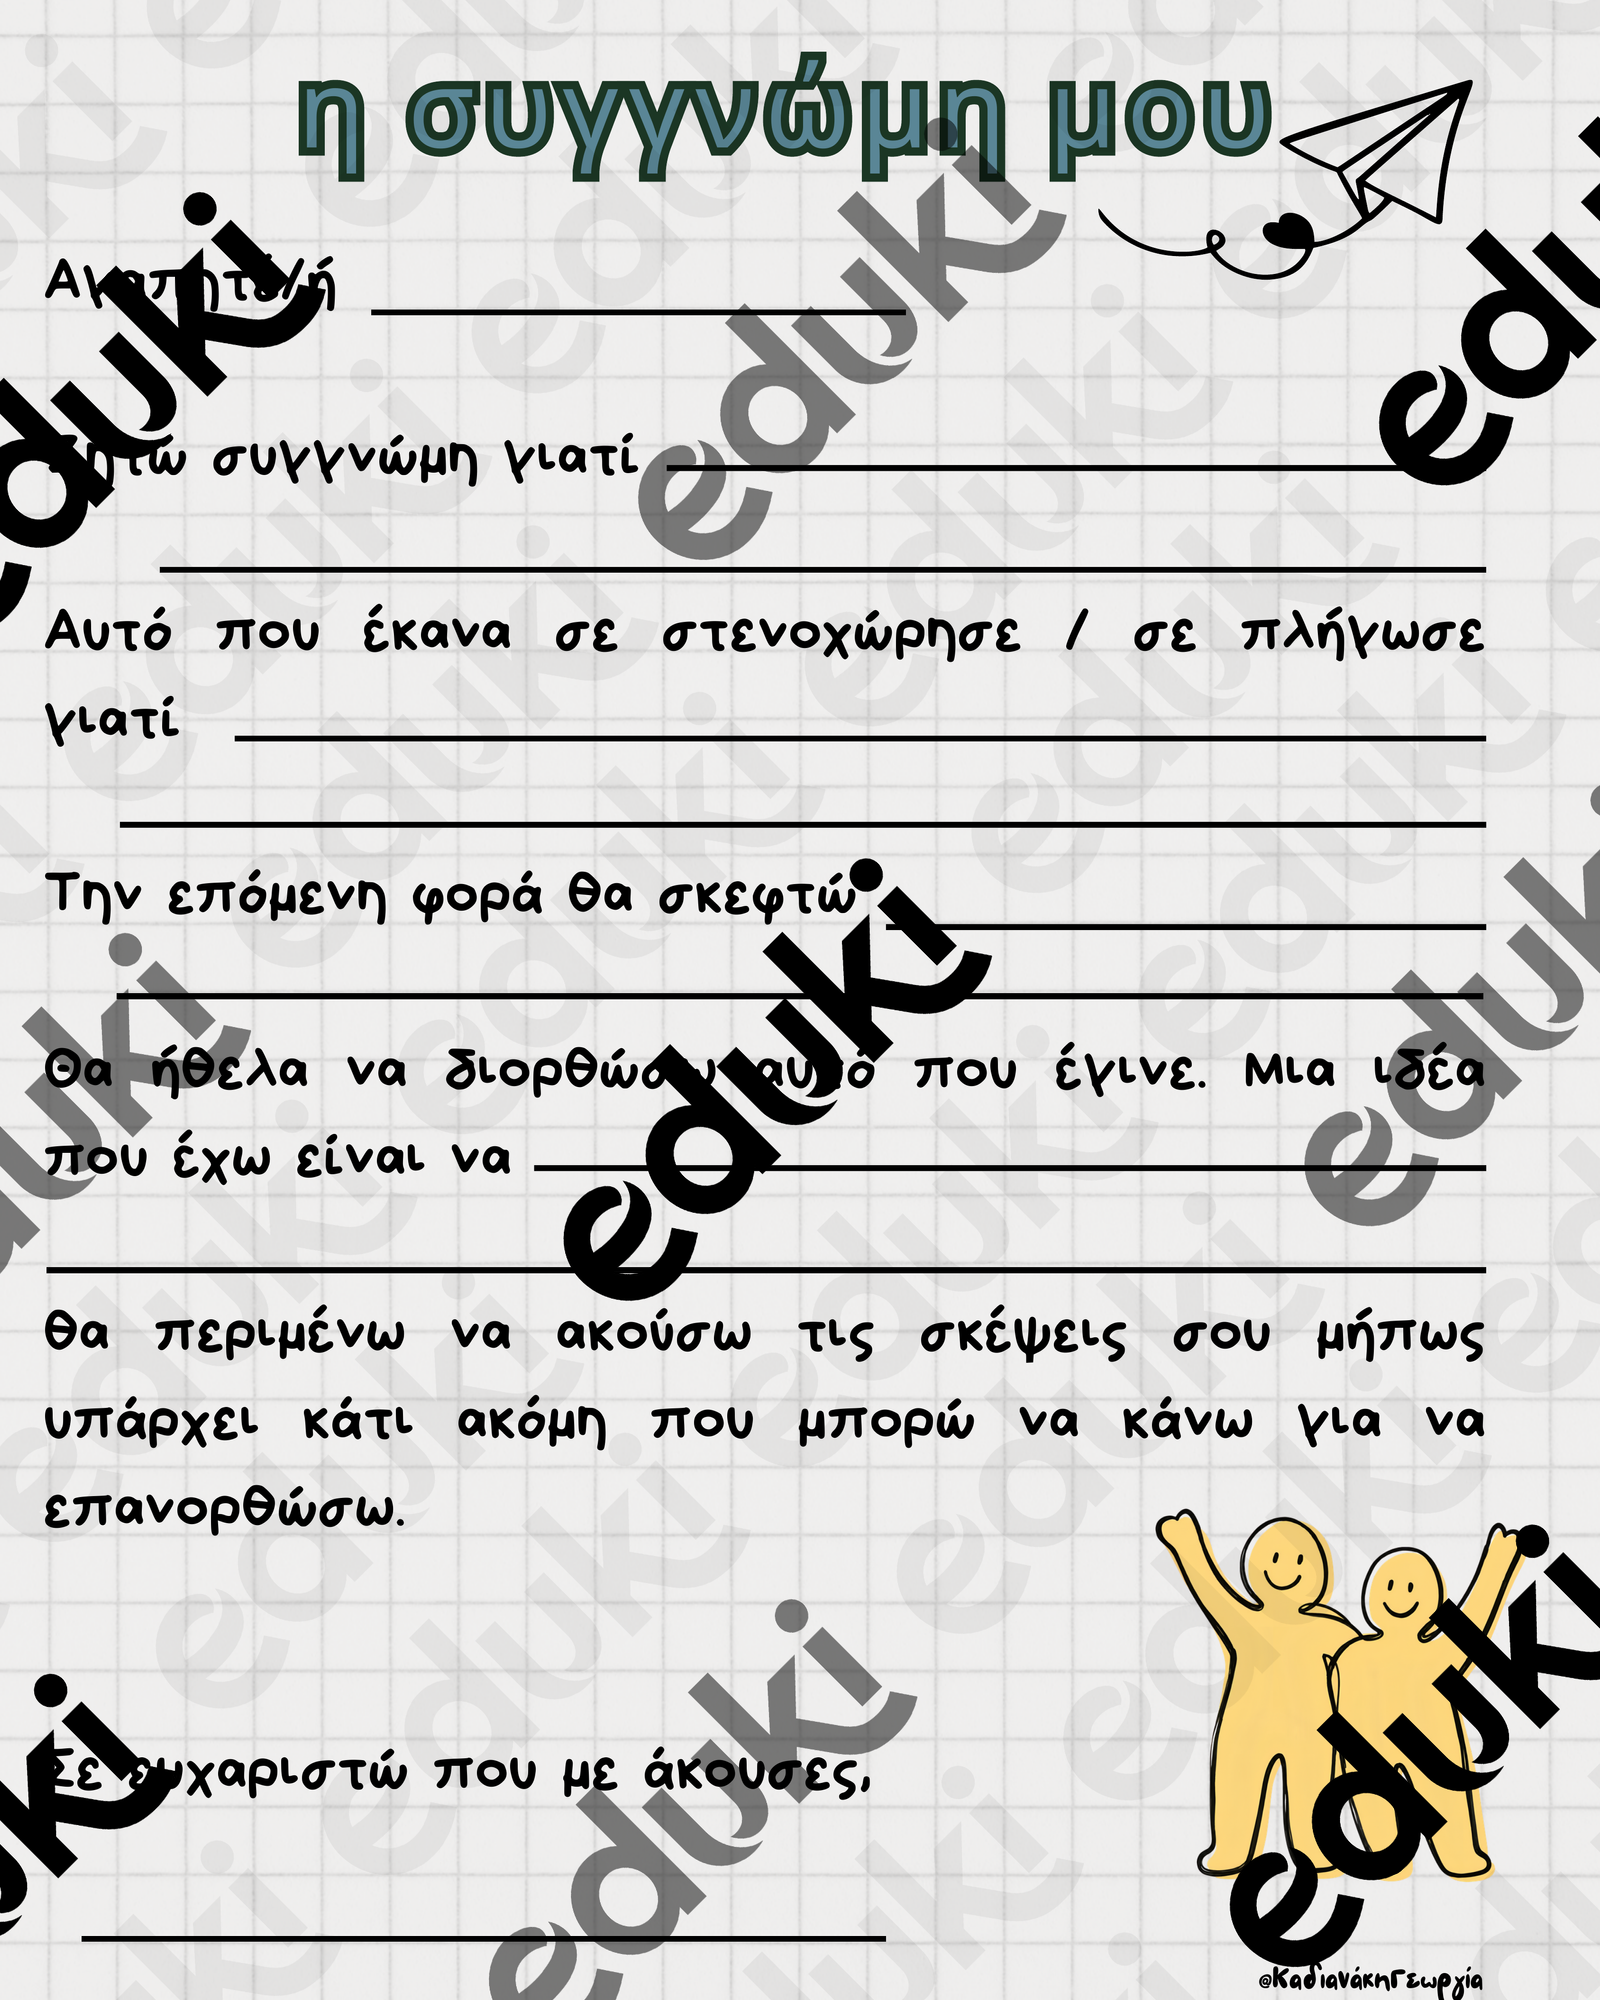 η συγγνώμη μου
Αγαπητέ/ή
Ζητώ συγγνώμη γιατί
Αυτό που έκανα σε στενοχώρησε / σε πλήγωσε
γιατί
Την επόμενη φορά θα σκεφτώ
Θα ήθελα να διορθώσω αυτό που έγινε. Μια ιδέα
που έχω είναι να
θα περιμένω να ακούσω τις σκέψεις σου μήπως
υπάρχει κάτι ακόμη που μπορώ να κάνω για να
επανορθώσω.
Σε ευχαριστώ που με άκουσες,
@ΚαδιανάκηΓεωργία
eduki
eduki
eduki
eduki
eduki
eduki
eduki
eduki
eduki
eduki